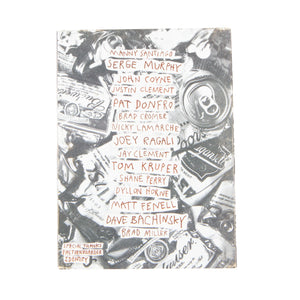 MANNY SANTIAGO
SERGE MURPHY
JOHN COYNE
JUSTIN CLEMENT
PAT DONFRO
BRAD CROMER
NICKY LAMARCHE
JOEY RAGALI
JAY CLEMENT
TOM KRUPER
SHANE PERRY
DYLLON HORNE
MATT FENELL
DAVE BACHINSKY
BRAD MILLER
SPECIAL THANKS